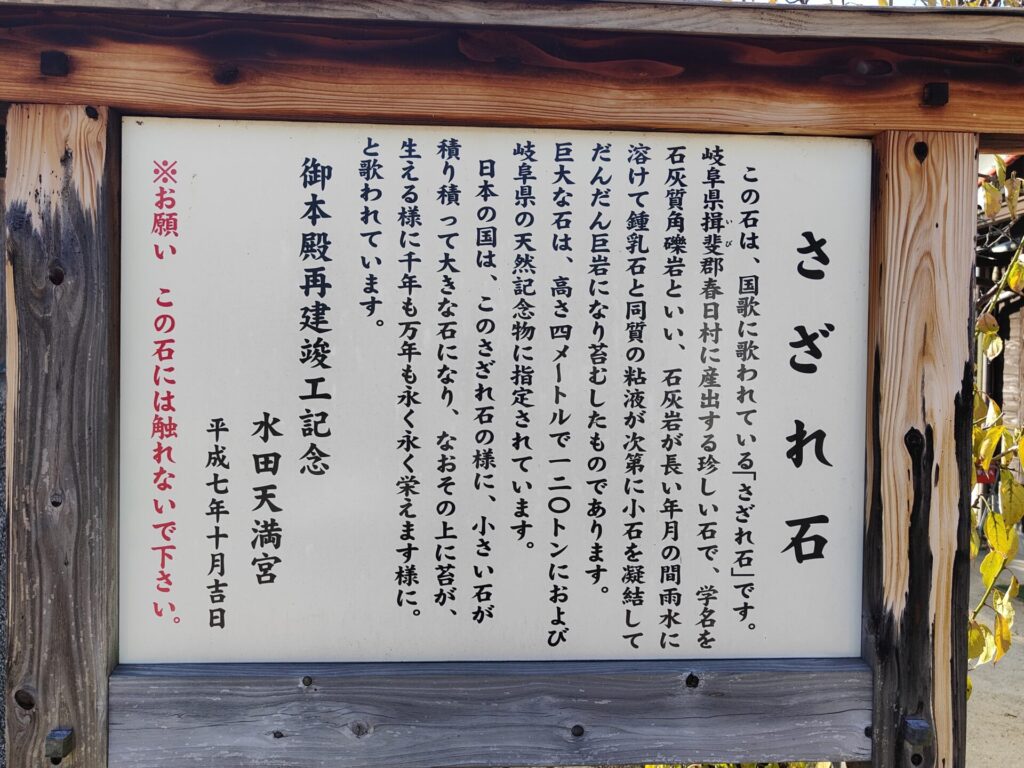 さざれ石
この石は、国歌に歌われている「さざれ石」です。
岐阜県揖斐郡春日村に産出する珍しい石で、学名を
いび
石灰質角礫岩といい、石灰岩が長い年月の間雨水に
溶けて鍾乳石と同質の粘液が次第に小石を凝結して
だんだん巨岩になり苔むしたものであります。
巨大な石は、高さ四メートルで一二〇トンにおよび
岐阜県の天然記念物に指定されています。
日本の国は、このさざれ石の様に、小さい石が
積り積って大きな石になり、なおその上に苔が、
生える様に千年も万年も永く永く栄えます様に。
と歌われています。
御本殿再建竣工記念
水田天満宮
平成七年十月吉日
※お願い この石には触れないで下さい。